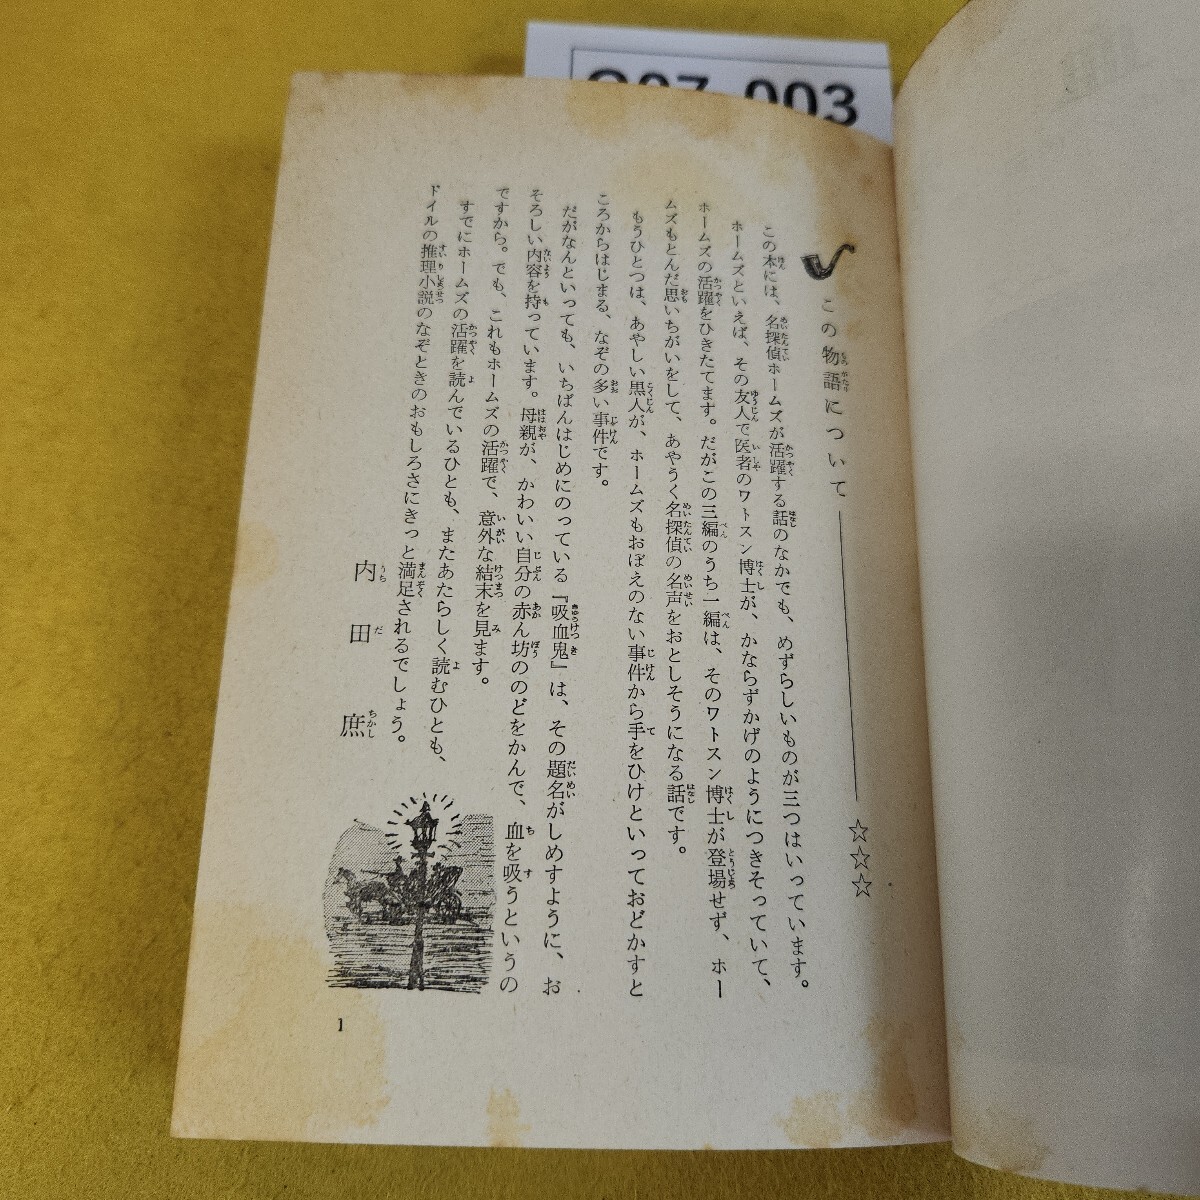 003
この物語について
☆☆☆
この本には、名探偵ホームズが活躍する話のなかでも、めずらしいものが三つはいっています。
ホームズといえば、その友人で医者のワトスン博士が、かならずかげのようにつきそっていて、
ホームズの活躍をひきたてます。だがこの三編のうち一編は、そのワトスン博士が登場せず、ホー
ムズもとんだ思いちがいをして、あやうく名探偵の名声をおとしそうになる話です。
もうひとつは、あやしい黒人が、ホームズもおぼえのない事件から手をひけといっておどかすと
ころからはじまる、なぞの多い事件です。
だがなんといっても、いちばんはじめにのっている『吸血鬼』は、その題名がしめすように、お
そろしい内容を持っています。母親が、かわいい自分の赤ん坊ののどをかんで、血を吸うというの
ですから。でも、これもホームズの活躍で、意外な結末を見ます。
すでにホームズの活躍を読んでいるひとも、またあたらしく読むひとも、
ドイルの推理小説のなぞときのおもしろさにきっと満足されるでしょう。
内田庶
1